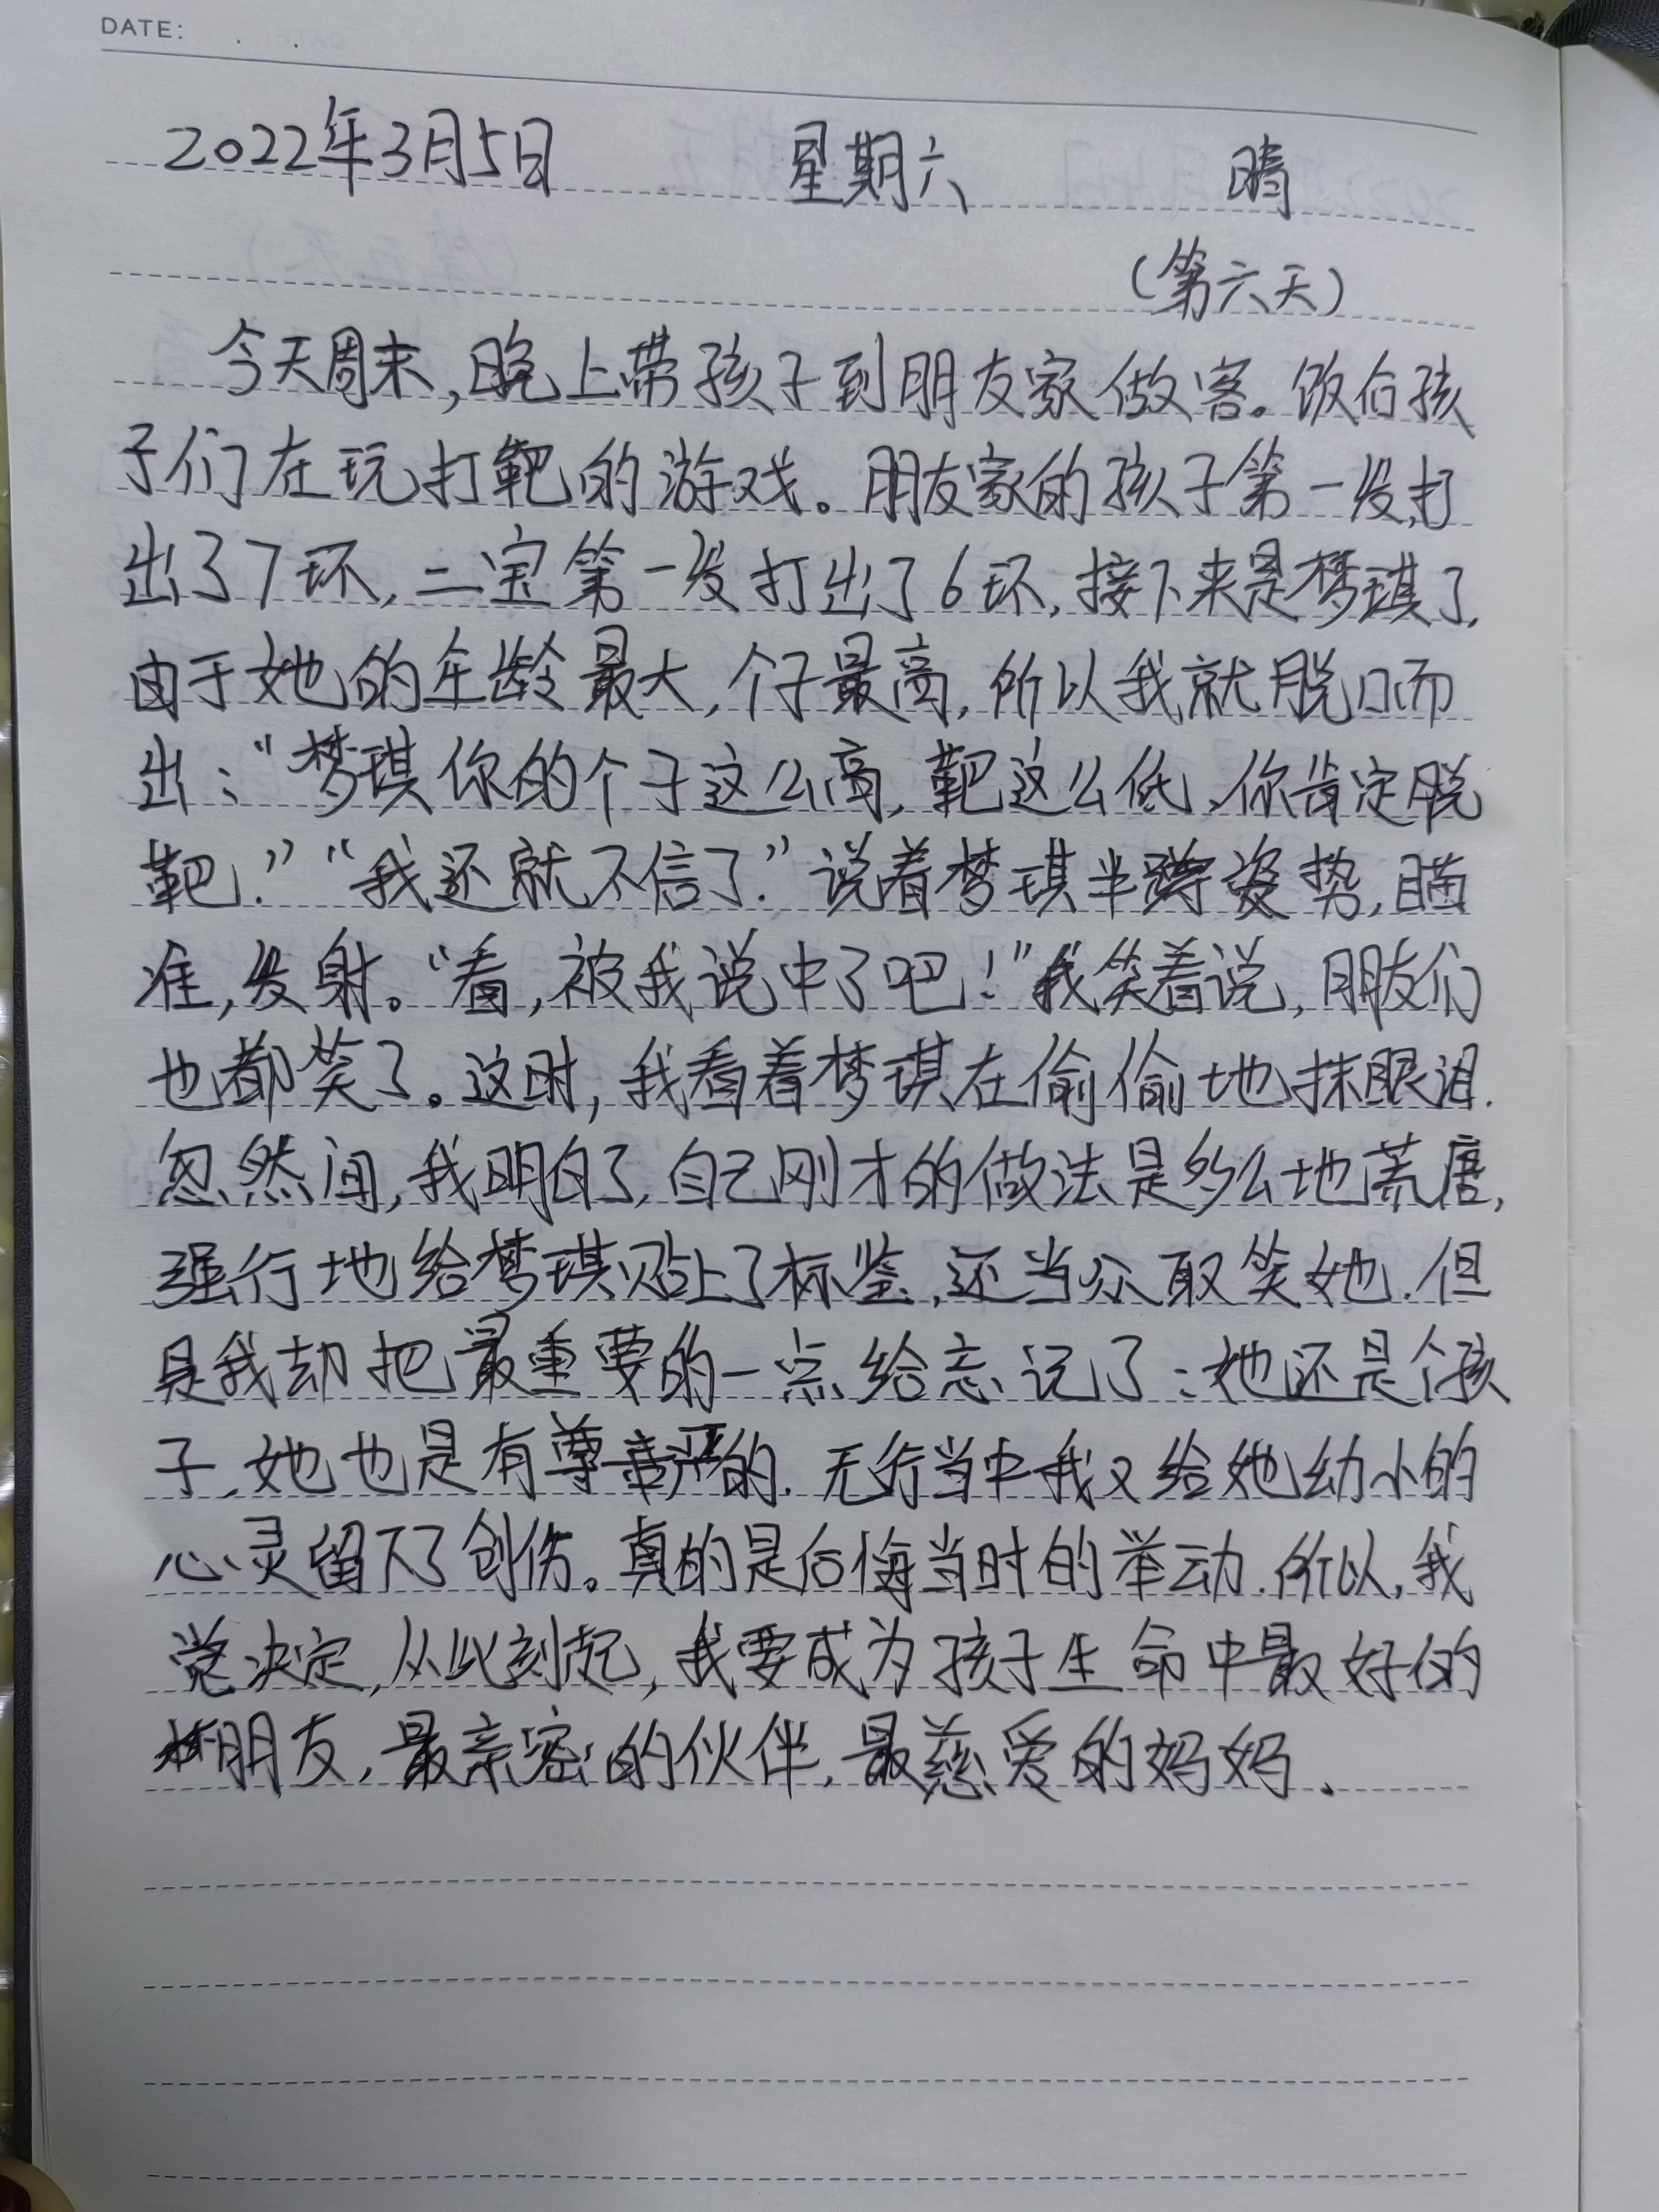 DATE: . .
2022年3月5日 星期六 晴
(第六天)
今天周末,晚上带孩子到朋友家做客。饭后孩
子们在玩打靶的游戏。朋友家的孩子第一发打
出了7环,二宝第一发打出了6环,接下来是梦琪了.
由于她的年龄最大,个子最高,所以我就脱口而
出:“梦琪你的个子这么高,靶这么低,你肯定脱
靶.”“我还就不信了.”说着梦琪半蹲姿势,瞄
准,发射。“看,被我说中了吧!”我笑着说,朋友们
也都笑了。这时,我看着梦琪在偷偷地抹眼泪.
忽然间,我明白了,自己刚才的做法是多么地荒唐,
强行地给梦琪贴上了标签,还当众取笑她.但
是我却把最重要的一点给忘记了:她还是个孩
子,她也是有尊严的.无行当中我又给她幼小的
心灵留下了创伤。真的是后悔当时的举动.所以,我
决定,从此刻起,我要成为孩子生命中最好的
朋友,最亲密的伙伴,最慈爱的妈妈.